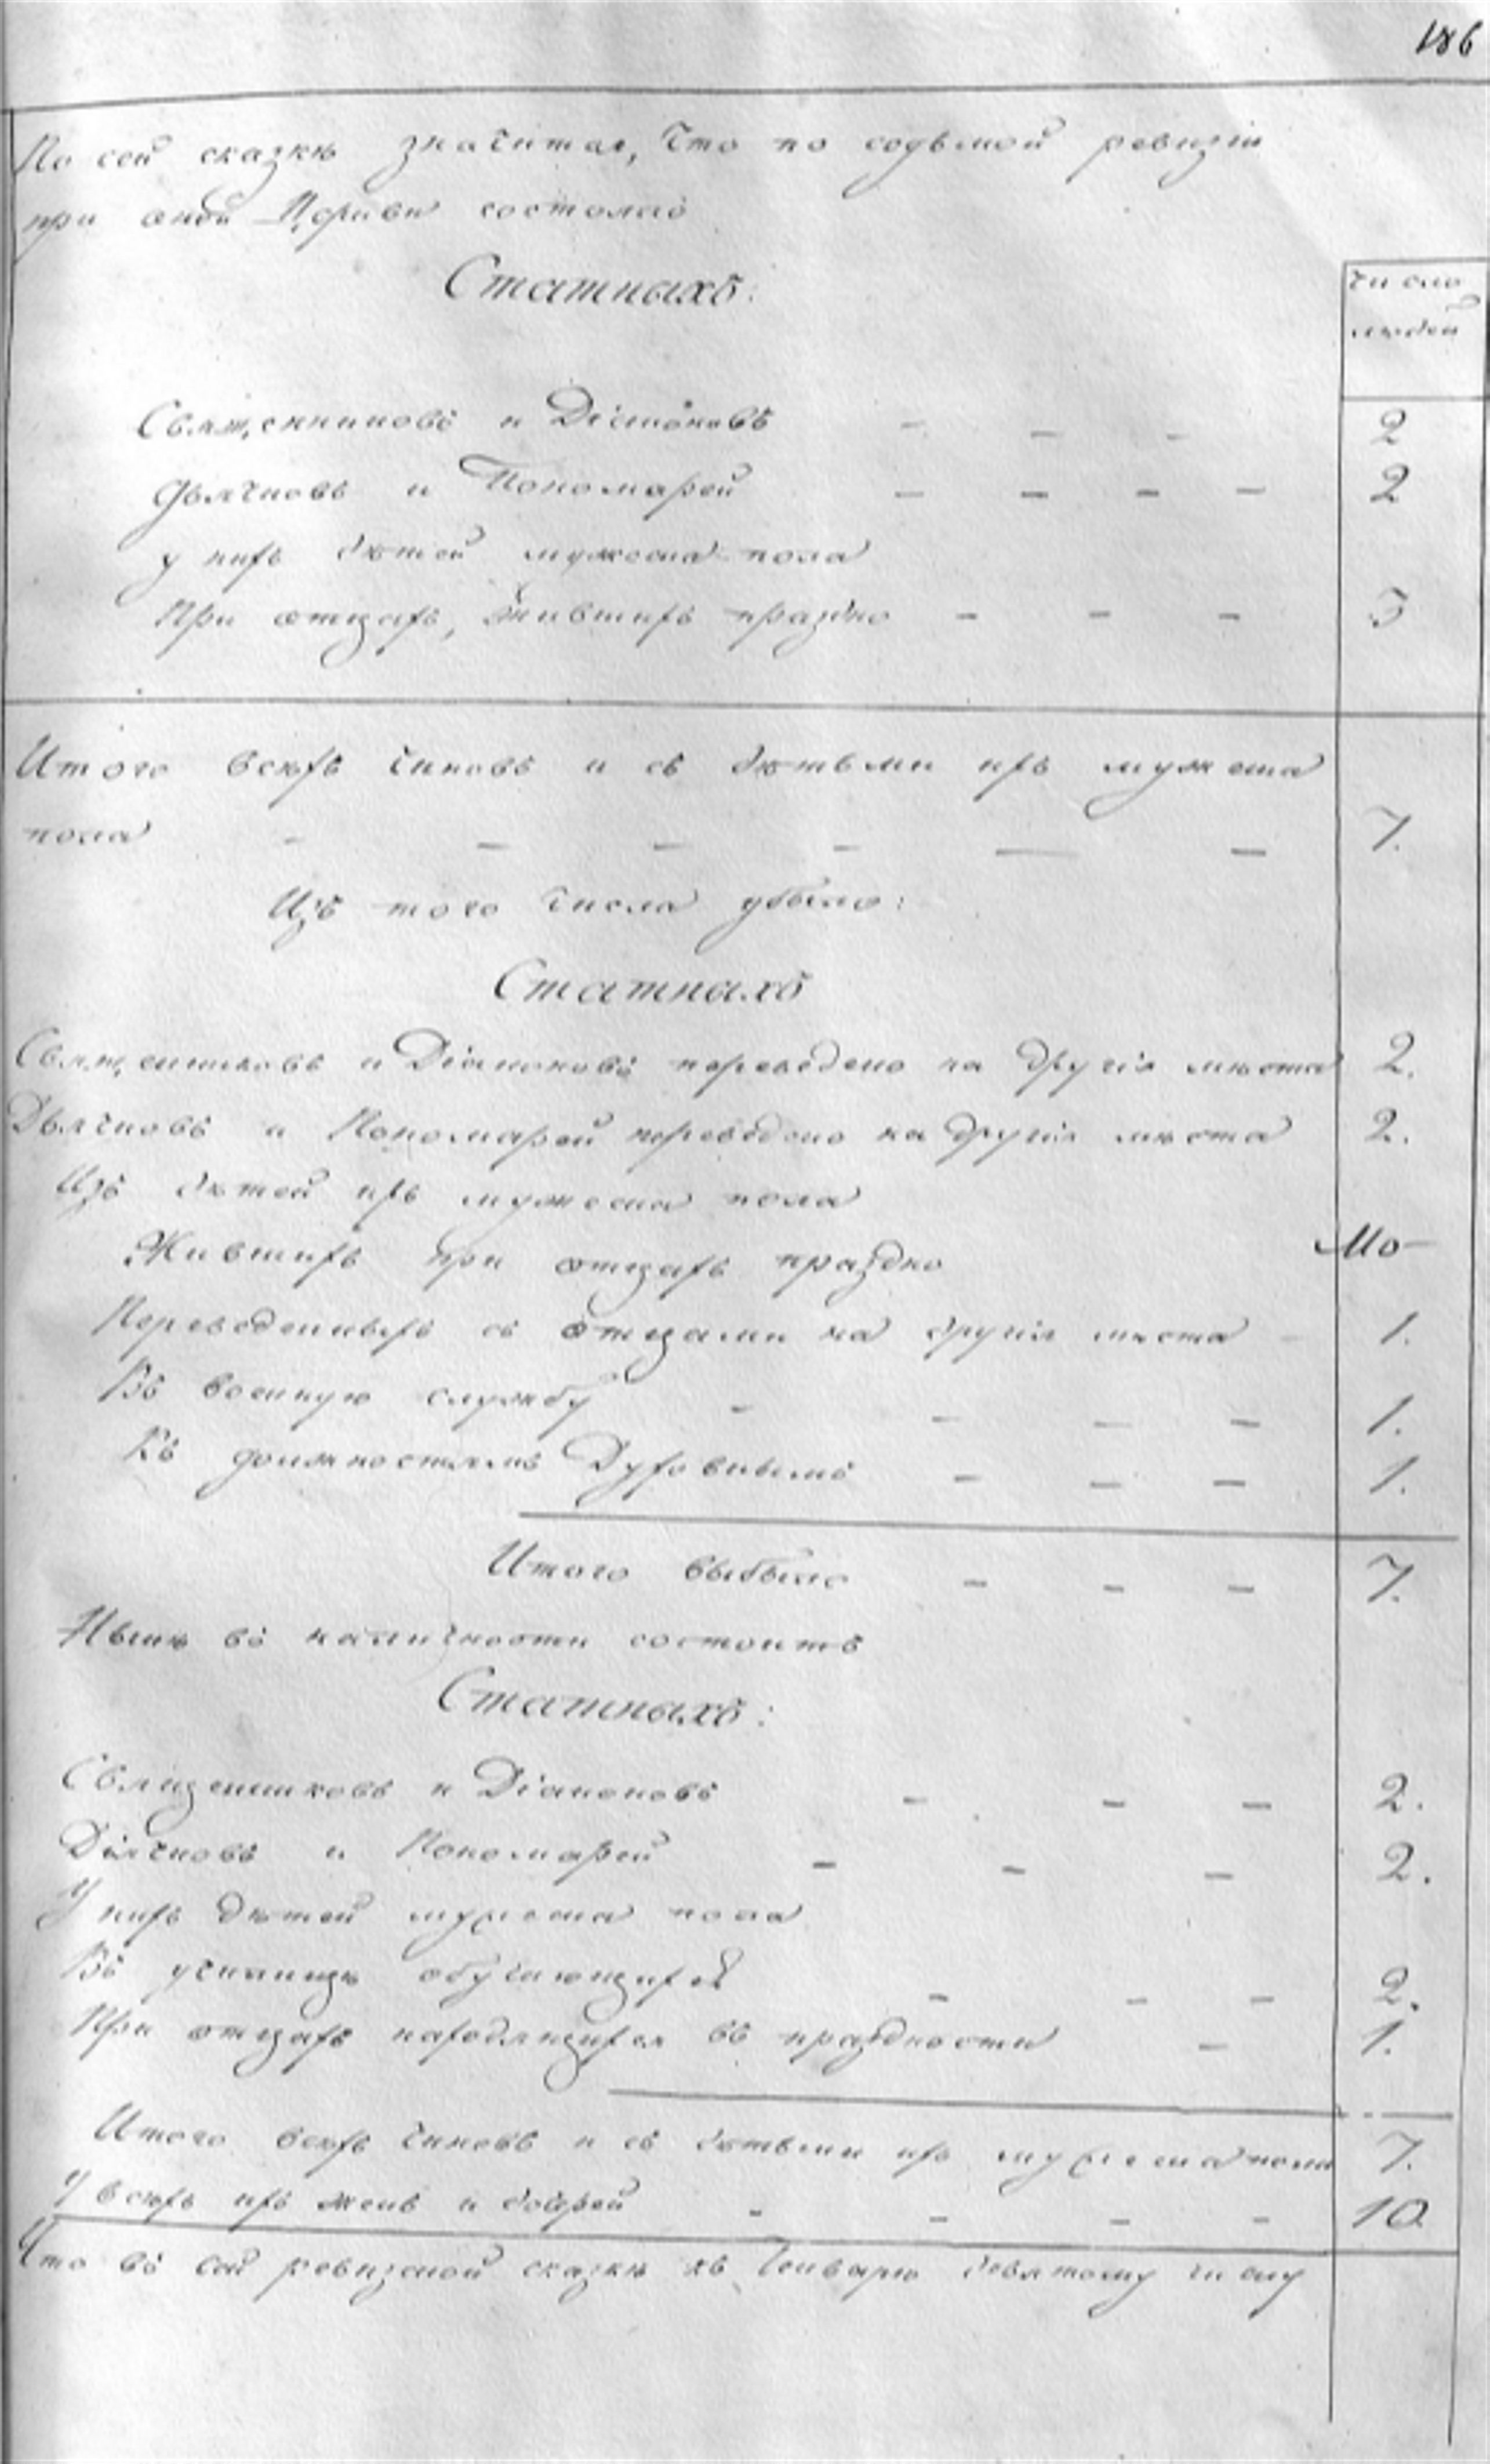 186
По сей сказкѣ значится, что по седьмой ревизіи
при оной Церкви состояло
Статныхъ:
Число
людей
Священниковъ и Діаконовъ - - - 2
Дьячковъ и Пономарей - - - - 2
у нихъ дѣтей мужеска пола
При отцахъ, жившихъ праздно - - - 3
Итого всѣхъ чиновъ и съ дѣтьми ихъ мужеска
пола - - - - - - 7.
Изъ того числа убыло:
Статныхъ
Священниковъ и Діаконовъ переведено на другія мѣста 2.
Дьячковъ и Пономарей переведено на другія мѣста 2.
Изъ дѣтей ихъ мужеска пола
Жившихъ при отцахъ праздно
Переведенныхъ съ отцами на другія мѣста - 1.
Въ военную службу - - - - 1.
Къ должностямъ Духовнымъ - - - 1.
Итого выбыло - - - 7.
Нынѣ въ наличности состоитъ
Статныхъ:
Священниковъ и Діаконовъ - - - 2.
Дьячковъ и Пономарей - - - 2.
У нихъ дѣтей мужеска пола
Въ училищѣ обучающихся - - - 2.
При отцахъ находящихся въ праздности - 1.
Итого всѣхъ чиновъ и съ дѣтьми ихъ мужеска пола 7.
У всѣхъ ихъ женъ и дочерей - - - - 10
Что въ сей ревизской сказкѣ къ Генварю девятому числу